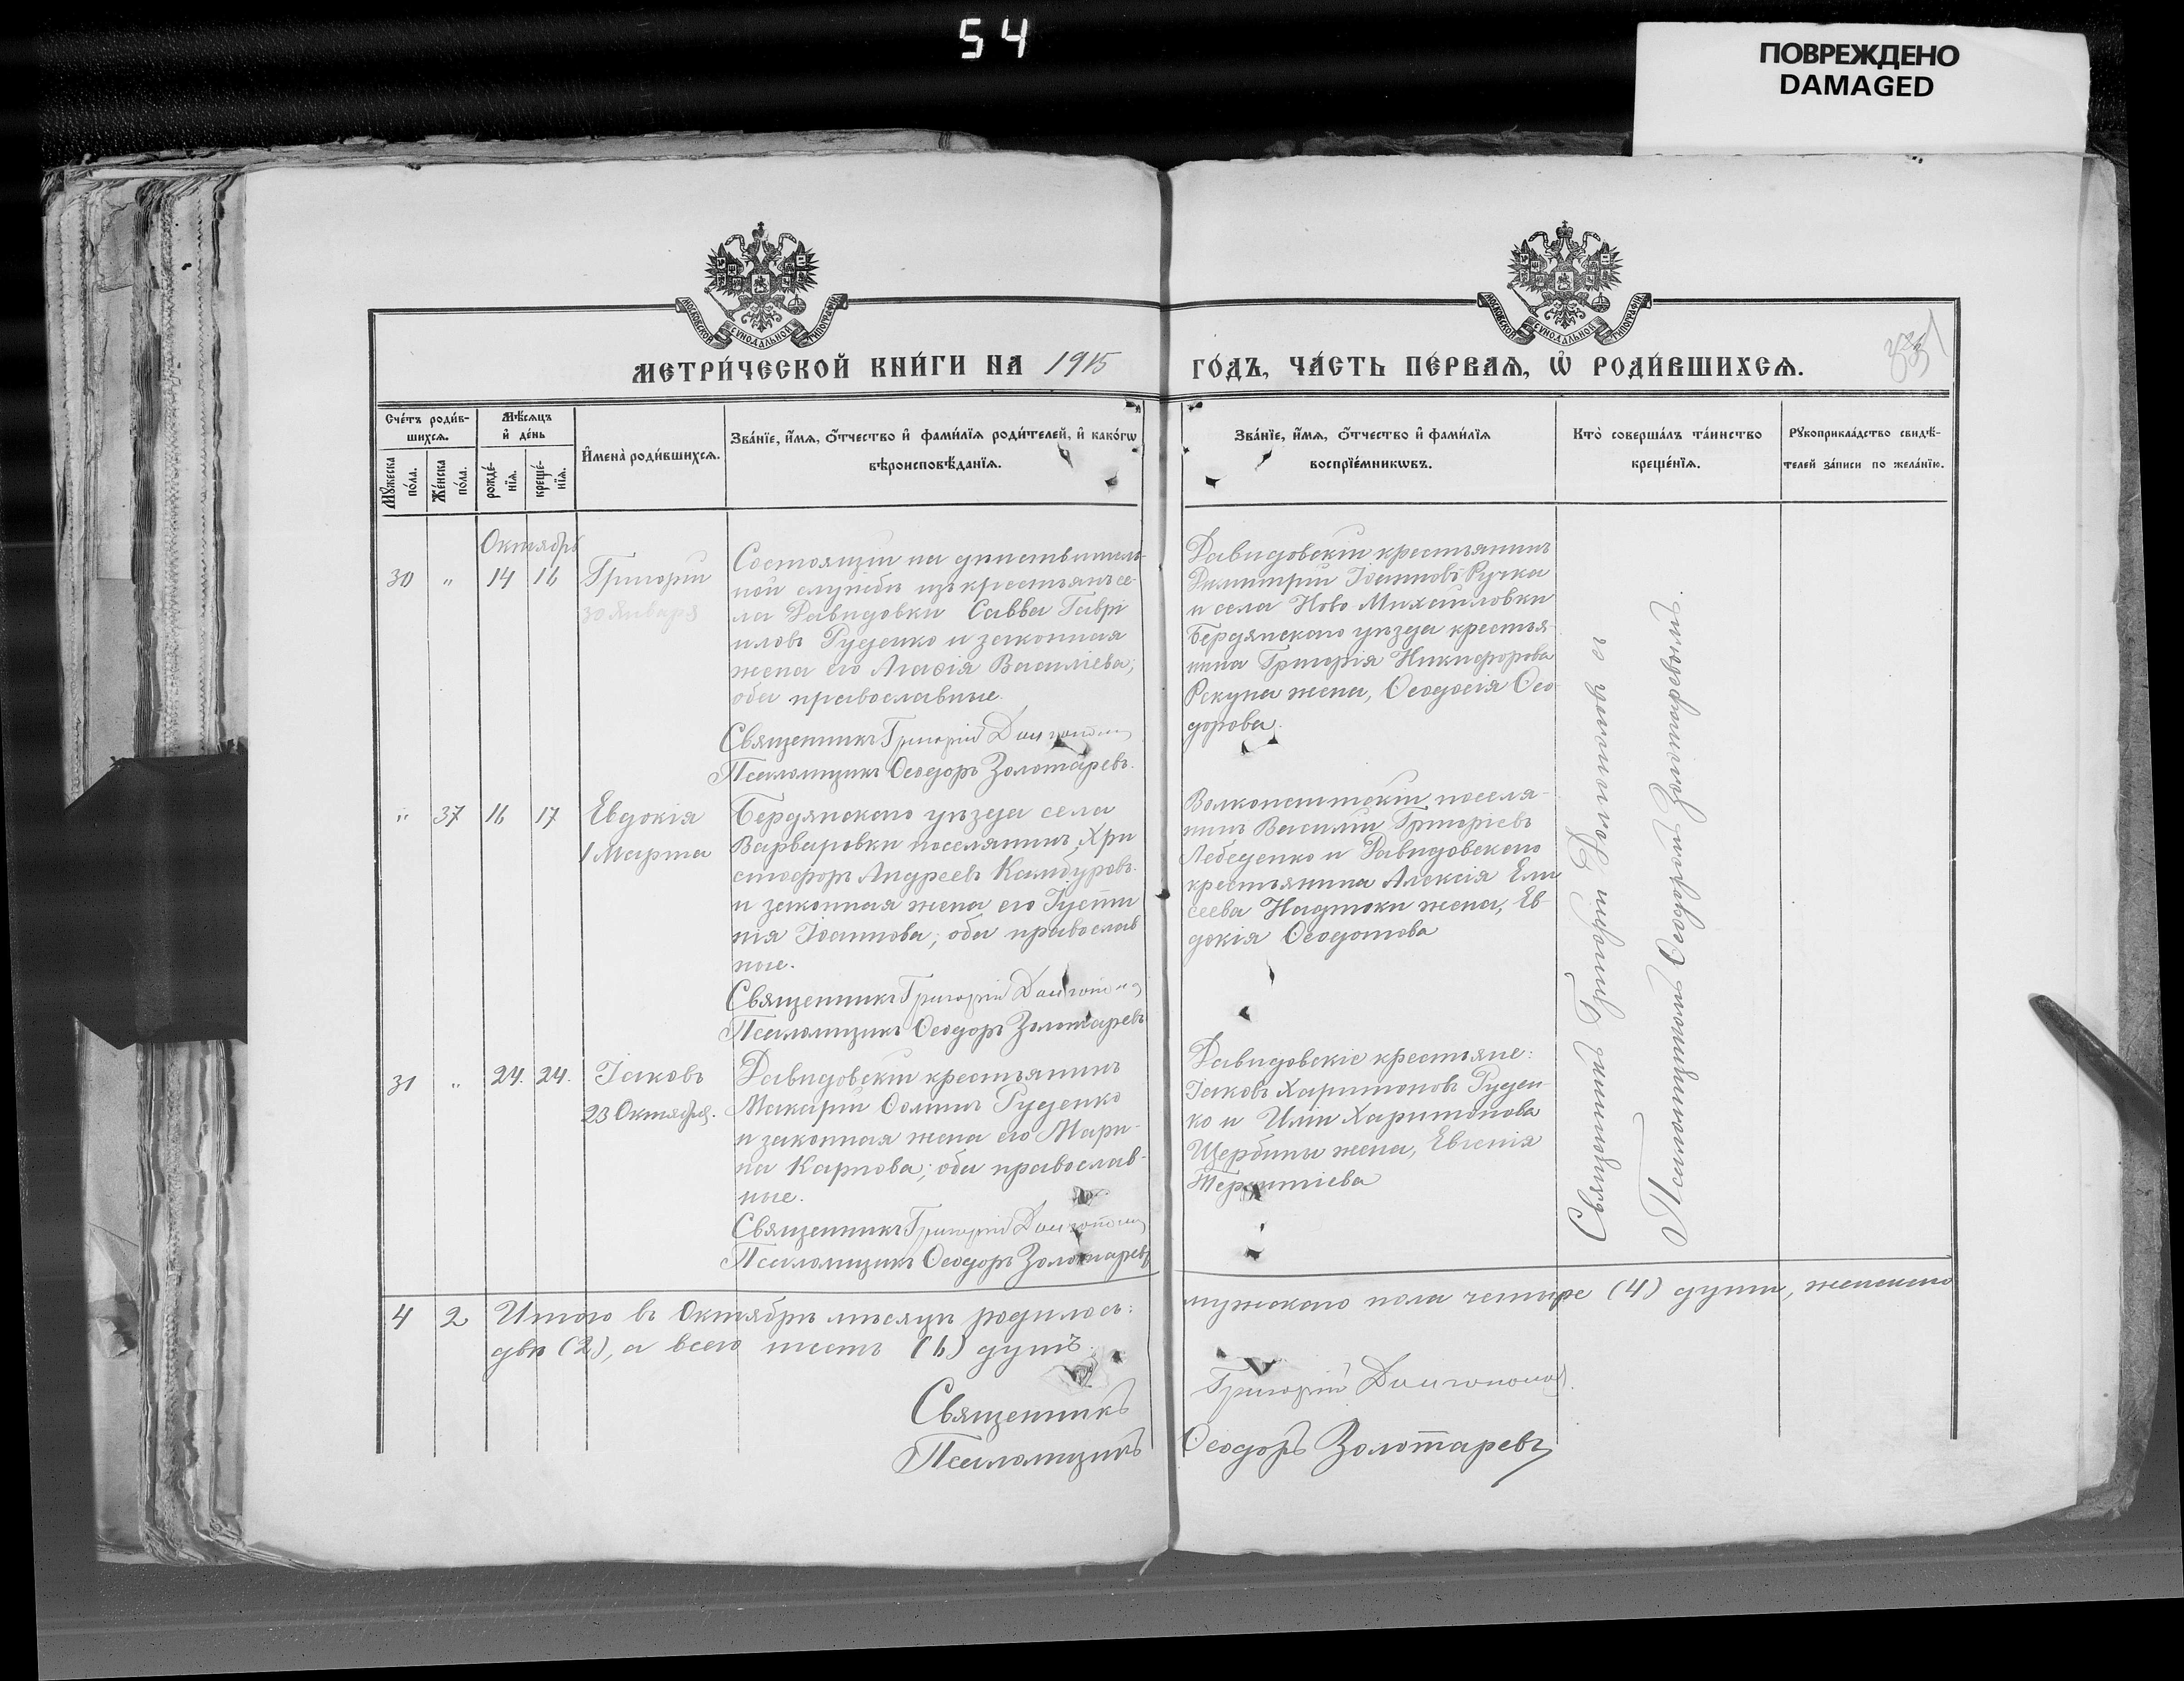 54
ПОВРЕЖДЕНО
DAMAGED
МОСКОВСКОЙ СУНОДАЛЬНОЙ ТИПОГРАФІИ
МОСКОВСКОЙ СУНОДАЛЬНОЙ ТИПОГРАФІИ
МЕТРИ́ЧЕСКОЙ КНИ́ГИ НА 1915 ГО́ДЪ, ЧА́СТЬ ПЕ́РВАѦ, Ѡ҆ РОДИ́ВШИХСѦ.
Сче́тъ роди́в-
шихсѧ.
Мꙋ́жеска
по́ла.
Же́нска
по́ла.
Мѣ́сѧцъ
и҆ де́нь
рожде́-
нїѧ.
креще́-
нїѧ.
И҆мена̀ роди́вшихсѧ.
Зва́нїе, и҆́мѧ, ѻ҆́тчество и҆ фами́лїѧ роди́телей, и҆ како́гѡ
вѣроисповѣ́данїѧ.
Зва́нїе, и҆́мѧ, ѻ҆́тчество и҆ фами́лїѧ
воспрїе́мникѡвъ.
Кто̀ соверша́лъ та́инство
креще́нїѧ.
Рꙋкоприкла́дство свидѣ́-
телей за́писи по жела́нїю.
Октябрь
30 " 14 16 Григорій
30 Января
Состоящій на дѣйствитель-
ной службѣ изъ крестьянъ се-
ла Давидовки Савва Гаврі
иловъ Руденко и законная
жена его Агаѳія Василіева;
оба православные.
Священникъ Григорій Долгополов
Псаломщикъ Ѳеодоръ Золотаревъ.
Давидовскій крестьянинъ
Димитрій Іоанновъ Ручка
и села Ново Михайловки
Бердянскаго уѣзда крестья-
нина Григорія Никифорова
Рекуна жена, Ѳеодосія Ѳео
дорова.
" 37 16 17 Евдокія
1 Марта
Бердянскаго уѣзда села
Варваровки поселянинъ Хри
стофоръ Андреевъ Камбуровъ.
и законная жена его Іусти
нія Іоаннова; оба православ
ные.
Священникъ Григорій Долгополов
Псаломщикъ Ѳеодоръ Золотаревъ
поселя-
нинъ Василій Григоріевъ
Лебеденко и Давидовскаго
крестьянина Алексія Ели
сеева Надтоки жена, Ев-
докія Ѳеодотова
31 " 24. 24. Іаковъ
23 Октября.
Давидовскій крестьянинъ
Макарій Ѳоминъ Руденко
и законная жена его Мари-
на Карпова; оба православ-
ные.
Священникъ Григорій Долгополов
Псаломщикъ Ѳеодоръ Золотаревъ
Давидовскіе крестьяне:
Іаковъ Харитоновъ Руден-
ко и Иліи Харитонова
Щербины жена, Евгенія
Терентіева
Священникъ Григорій Долгополовъ съ
Псаломщикомъ Ѳеодоромъ Золотаревымъ.
4 2 Итого въ Октябрѣ мѣсяцѣ родилось: мужскаго пола четыре (4) души, женскаго
двѣ (2), а всего шесть (6) душъ.
Священникъ Григорій Долгополов.
Псаломщикъ Ѳеодоръ Золотаревъ